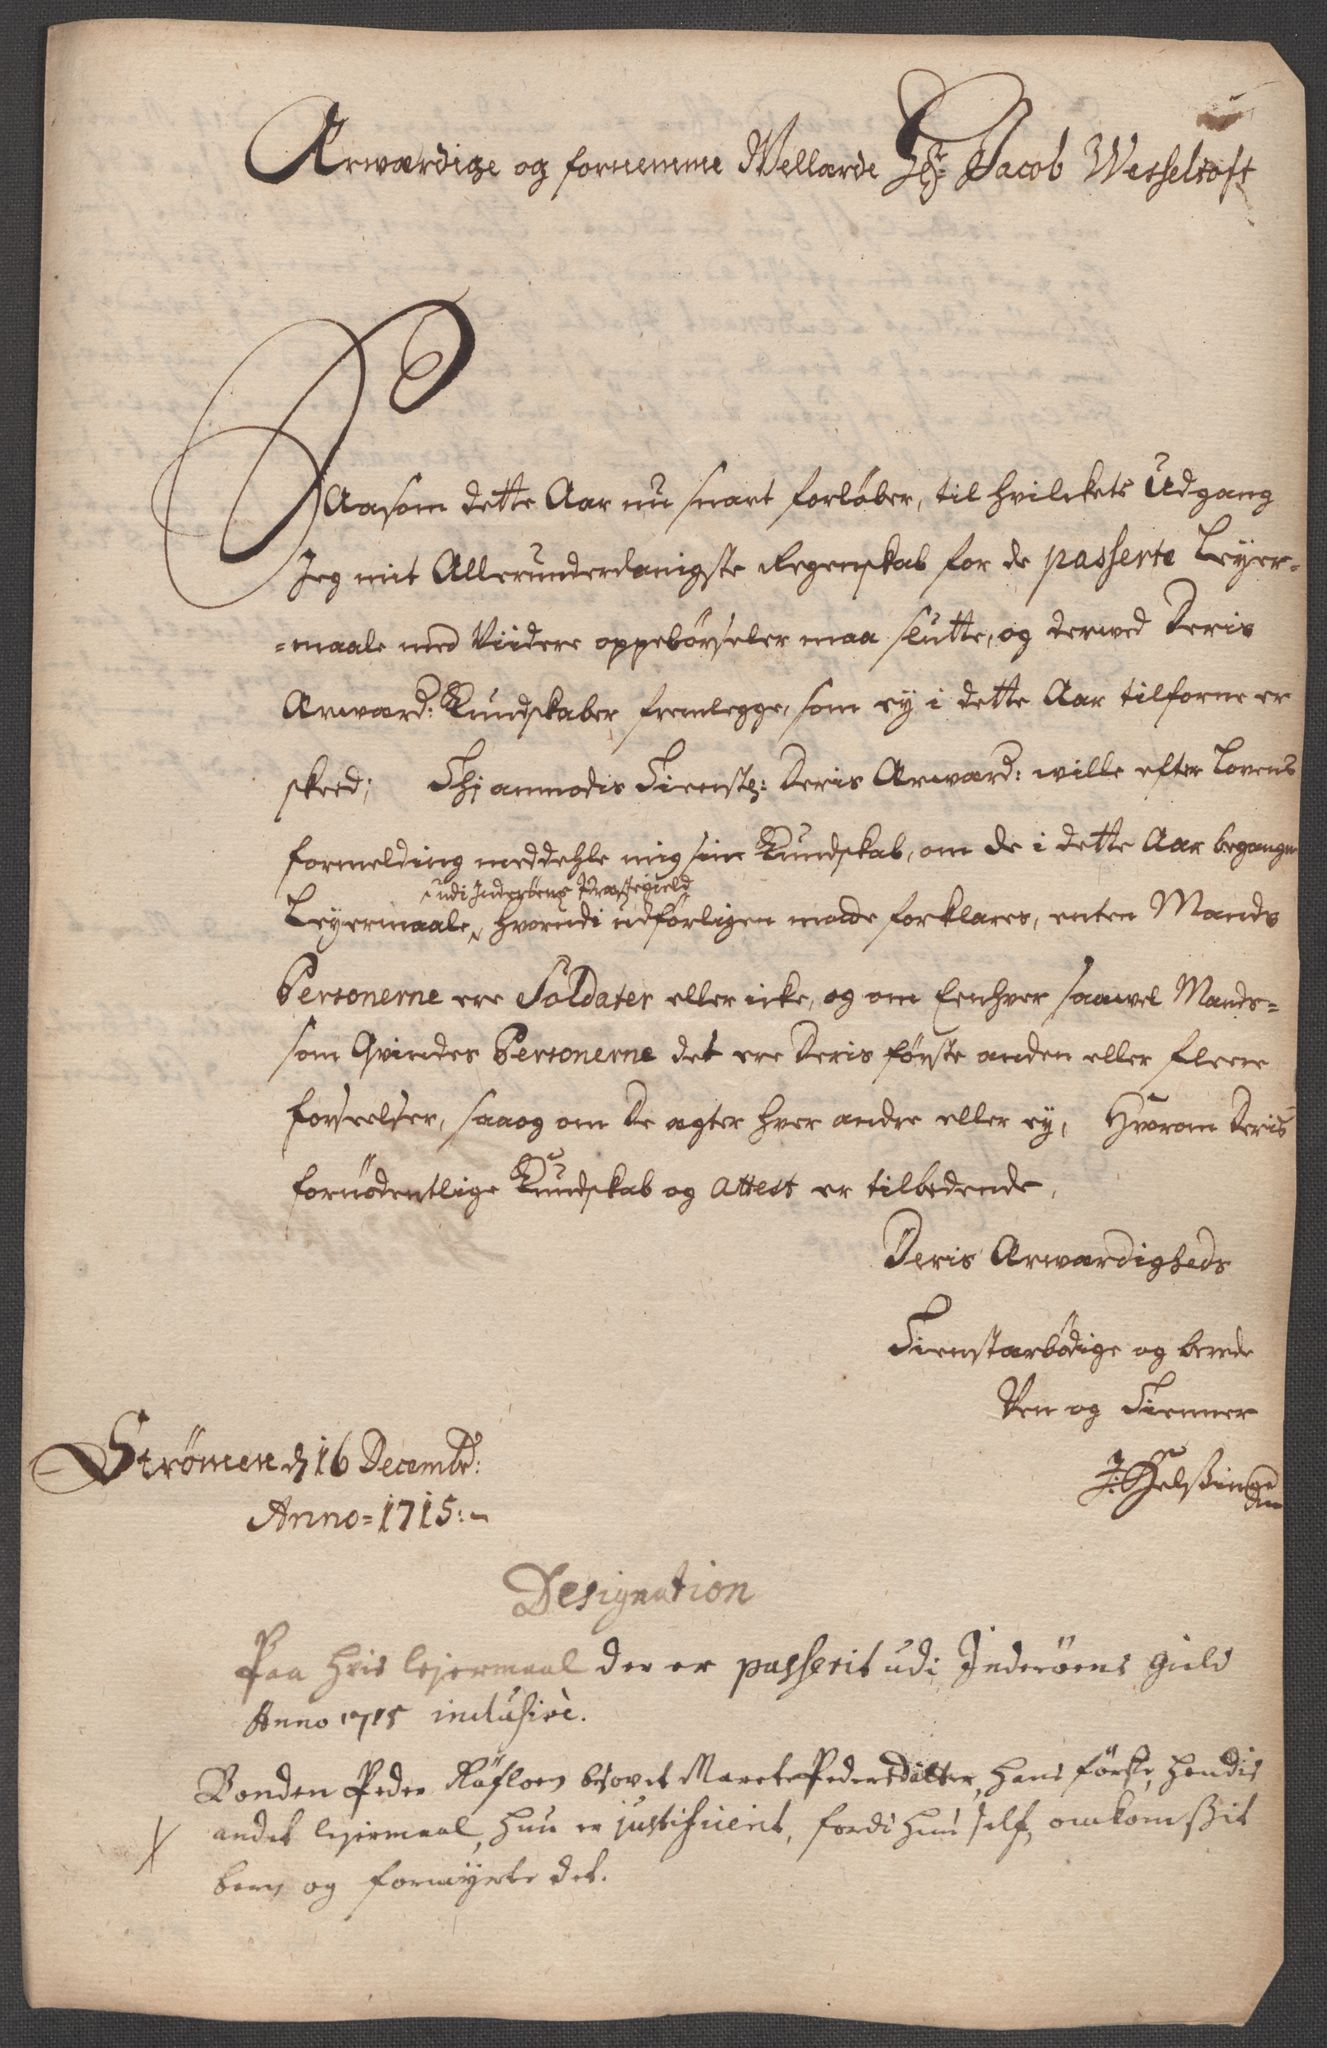 Ærwærdige og fornemme Wellærde Hr: Jacob Wesseltoft
Aasom dette Aar nu snart forløber, til hvilckets Udgang
Jeg mit Allerunderdanigste Regenskab for de passerte Leyer=
=maale med Viidere oppebørseler maa slutte, og derwed Deris
Ærwærd: Kundskaber fremlegge, som ey i dette Aar tilforne er
skeed; Thi anmodis Tienstl: Deris Ærwærd: wille efter Lovens
formelding meddehle mig sin Kundskab, om de i dette Aar begangne
udi Inderøens Præstegield
Leyermaale, hvorudi udførligen maade forklares, enten Mands
Personerne ere Soldater eller icke, og om Eenhver saawel Mands=
som Qvindes Personerne det ere Deris første anden eller fleere
forseelser, saa og om de agter hver andre eller ey, Hvorom Deris
fornødentlige Kundskab og attest er tilbedende,
Deris Ærwærdigheds
Tienstærbødige og berede
Ven og Tienner
Strømen d 16 Decembr:
Anno=1715:
Designation
Paa hvis lejermaal der er passerit udi Inderøens gield
Anno 1715 inclusivè.
Bonden Peder Røfloen besovet Marete Pedersdatter, hans første, hendis
andet lejermaal, hun er justificeret, fordi hun self omkom sit
barn og formyrte det.